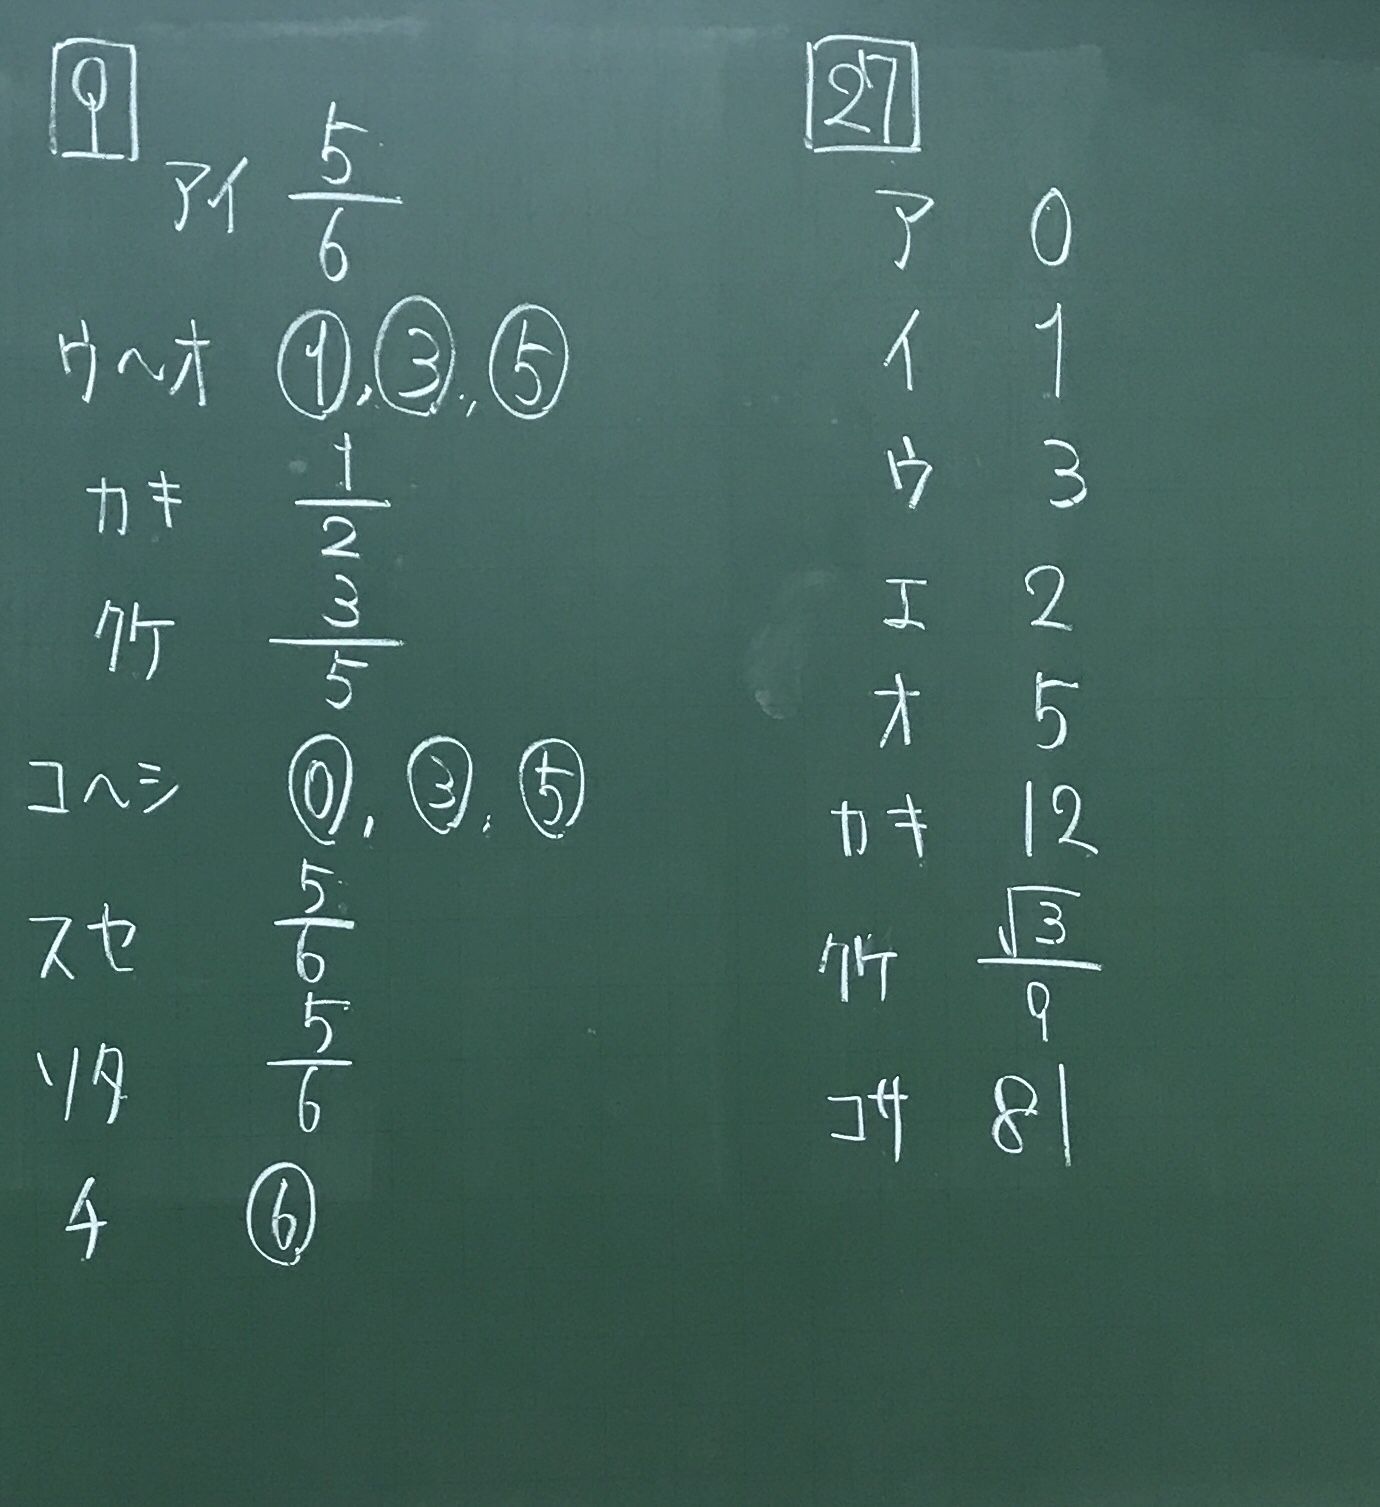 9
アイ 5/6
ウ～オ ①, ③, ⑤
カキ 1/2
クケ 3/5
コ～シ ⓪, ③, ⑤
スセ 5/6
ソタ 5/6
チ ⑥
27
ア 0
イ 1
ウ 3
エ 2
オ 5
カキ 12
クケ √3/9
コサ 81